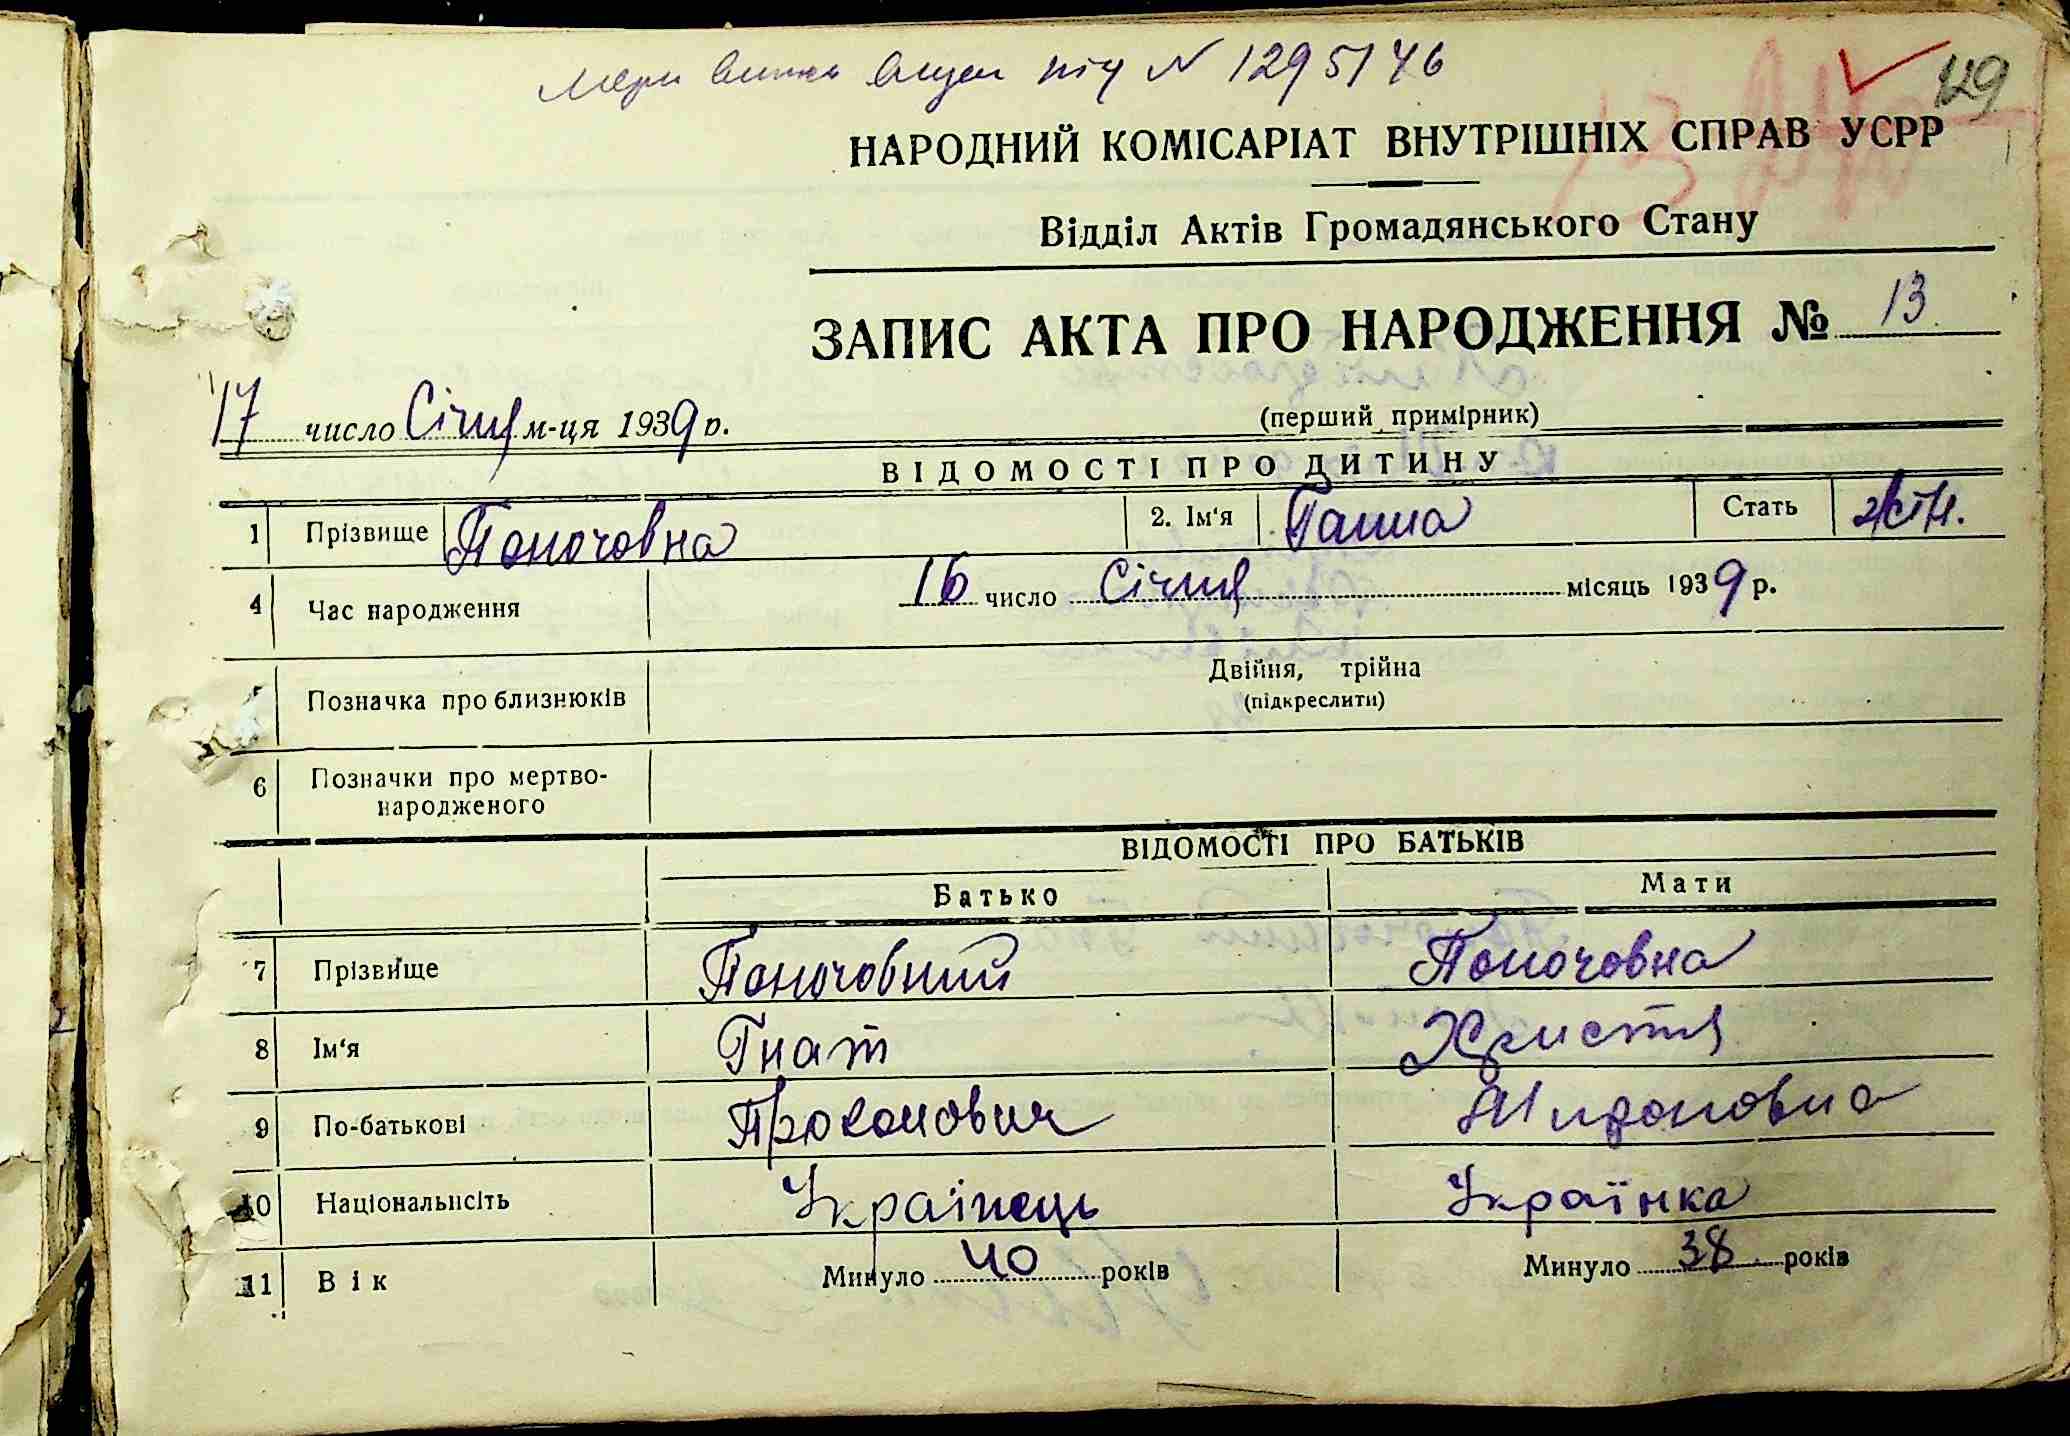 під № 1295146
129
НАРОДНИЙ КОМІСАРІАТ ВНУТРІШНІХ СПРАВ УСРР
Відділ Актів Громадянського Стану
ЗАПИС АКТА ПРО НАРОДЖЕННЯ № 13
17 число Січня м-ця 1939 р.
(перший примірник)
ВІДОМОСТІ ПРО ДИТИНУ
1 Прізвище Поночовна 2. Ім'я Ганна Стать жін.
4 Час народження 16 число Січня місяць 1939 р.
5 Позначка про близнюків Двійня, трійна
(підкреслити)
6 Позначки про мертво-
народженого
ВІДОМОСТІ ПРО БАТЬКІВ
Батько Мати
7 Прізвище Поночовний Поночовна
8 Ім'я Гнат Христя
9 По-батькові Прокопович Мироновна
10 Національність Українець Українка
11 Вік Минуло 40 років Минуло 38 років